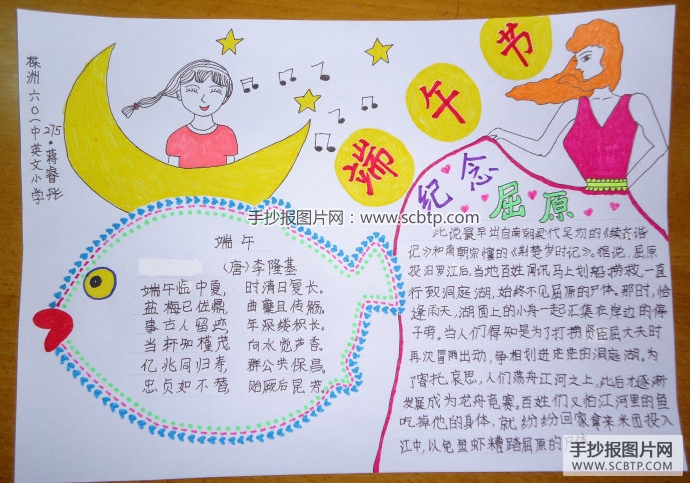 株洲六〇一中英文小学
275·蒋睿彤
端午节
纪念
屈原
手抄报图片网:www.scbtp.com
端午
(唐)李隆基
端午临中夏,时清日复长。
盐梅已佐鼎,曲糵且传觞。
事古人留迹,年深缕积长。
当 知槿茂,向水觉 香。
亿兆同归寿,群公共保昌。
忠贞如不替,贻厥后昆芳。
此说最早出自南朝梁代吴均的《续齐谐
记》和南朝宗懔的《荆楚岁时记》。据说,屈原
投汨罗江后,当地百姓闻讯马上划船捞救,一直
行致洞庭湖,始终不见屈原的尸体。那时,恰
逢雨天,湖面上的小舟一起汇集在岸边的亭
子旁。当人们得知是为了打捞贤臣屈大夫时
再次冒雨出动,争相划进茫茫的洞庭湖。为
了寄托哀思,人们荡舟江河之上,此后才逐渐
发展成为龙舟竞赛。百姓们又怕江河里的鱼
吃掉他的身体,就纷纷回家拿来米团投入
江中,以免鱼虾糟踏屈原的
手抄报图片网
WWW.SCBTP.COM